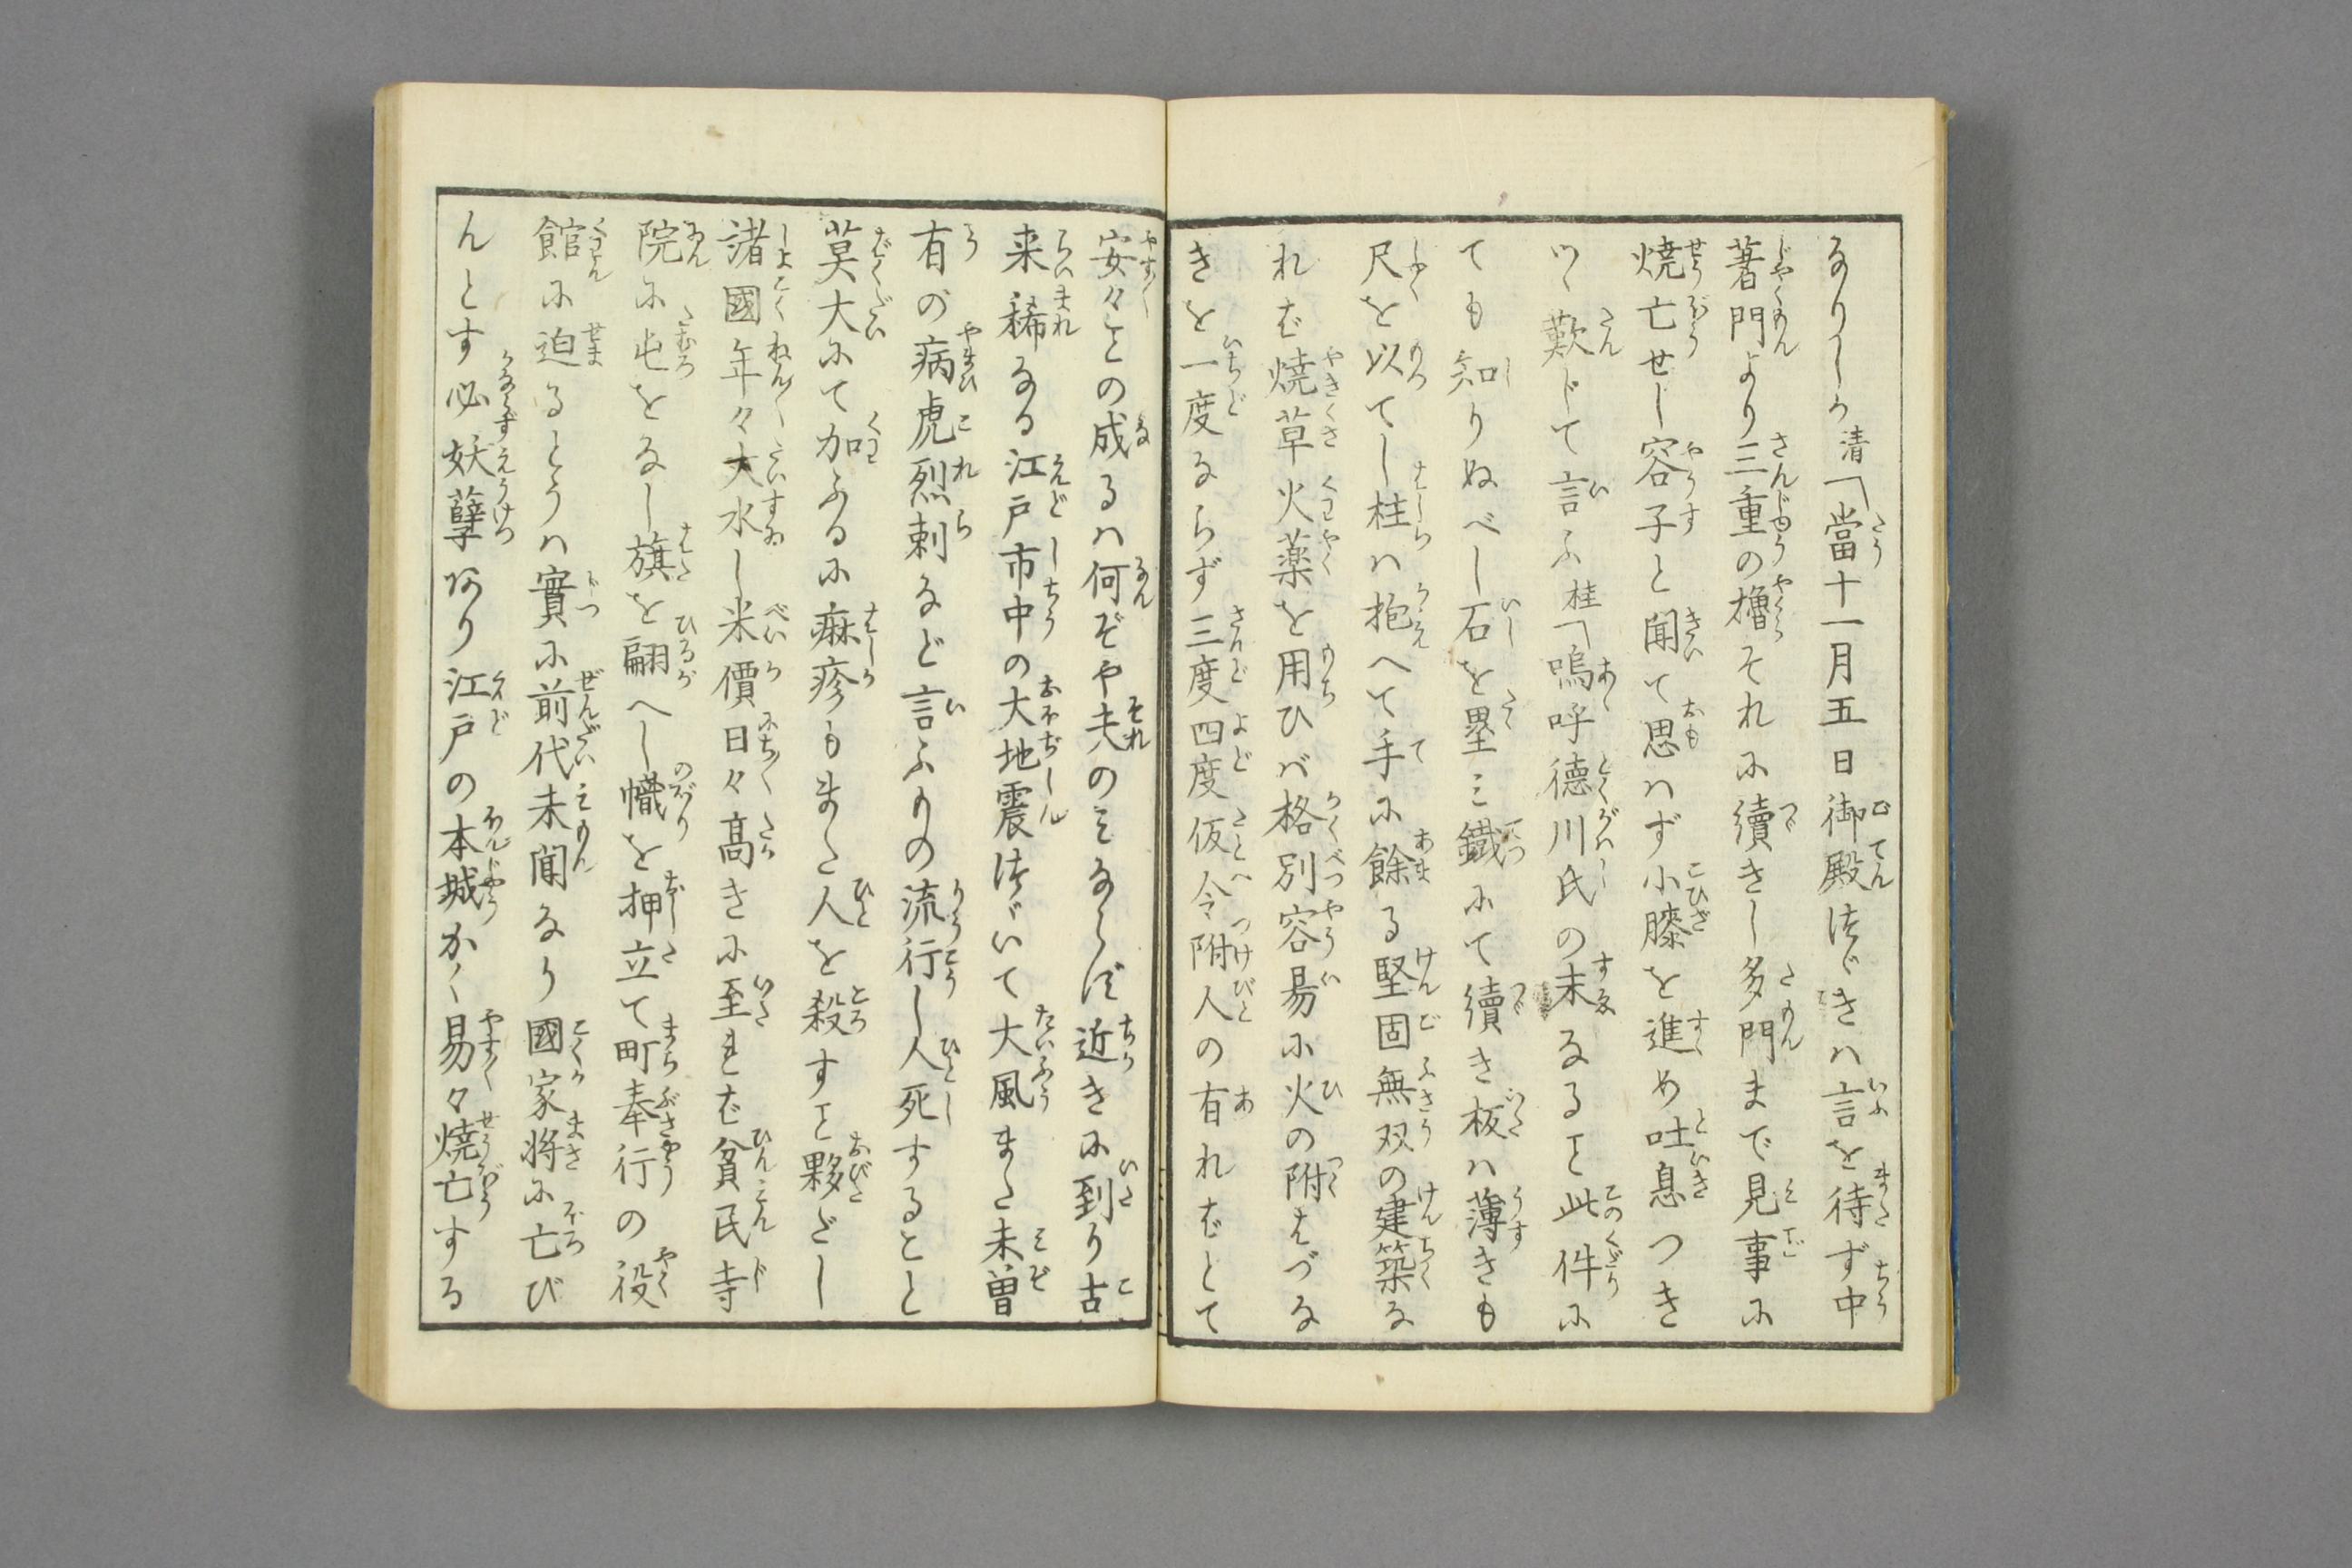 なりしか清「當十一月五日御殿つゞきハ言を待ず中
著門より三重の櫓それに續きし多門まで見事に
焼亡せし容子と聞て思ハず小膝を進め吐息つき
つゝ歎じて言ふ桂「嗚呼徳川氏の末なること此件に
ても知りぬべし石を塁ミ鐵にて續き板ハ薄きも
尺を以てし柱ハ抱へて手に餘る堅固無双の建築な
れば焼草火薬を用ひバ格別容易に火の附はづな
きを一度ならず三度四度仮令附人の有ればとて
安々との成るハ何ぞや夫のミならず近きに到り古
来稀なる江戸市中の大地震つゞいて大風また未曽
有の病虎烈剌など言ふもの流行し人死すること
莫大にて加ふるに痳疹もまた人を殺すこと夥だし
諸國年々大水し米價日々髙きに至れば貧民寺
院に屯をなし旗を翩へし幟を押立て町奉行の役
館に迫るとうハ實に前代未聞なり國家将に亡び
んとす必妖孽あり江戸の本城かく易々焼亡する